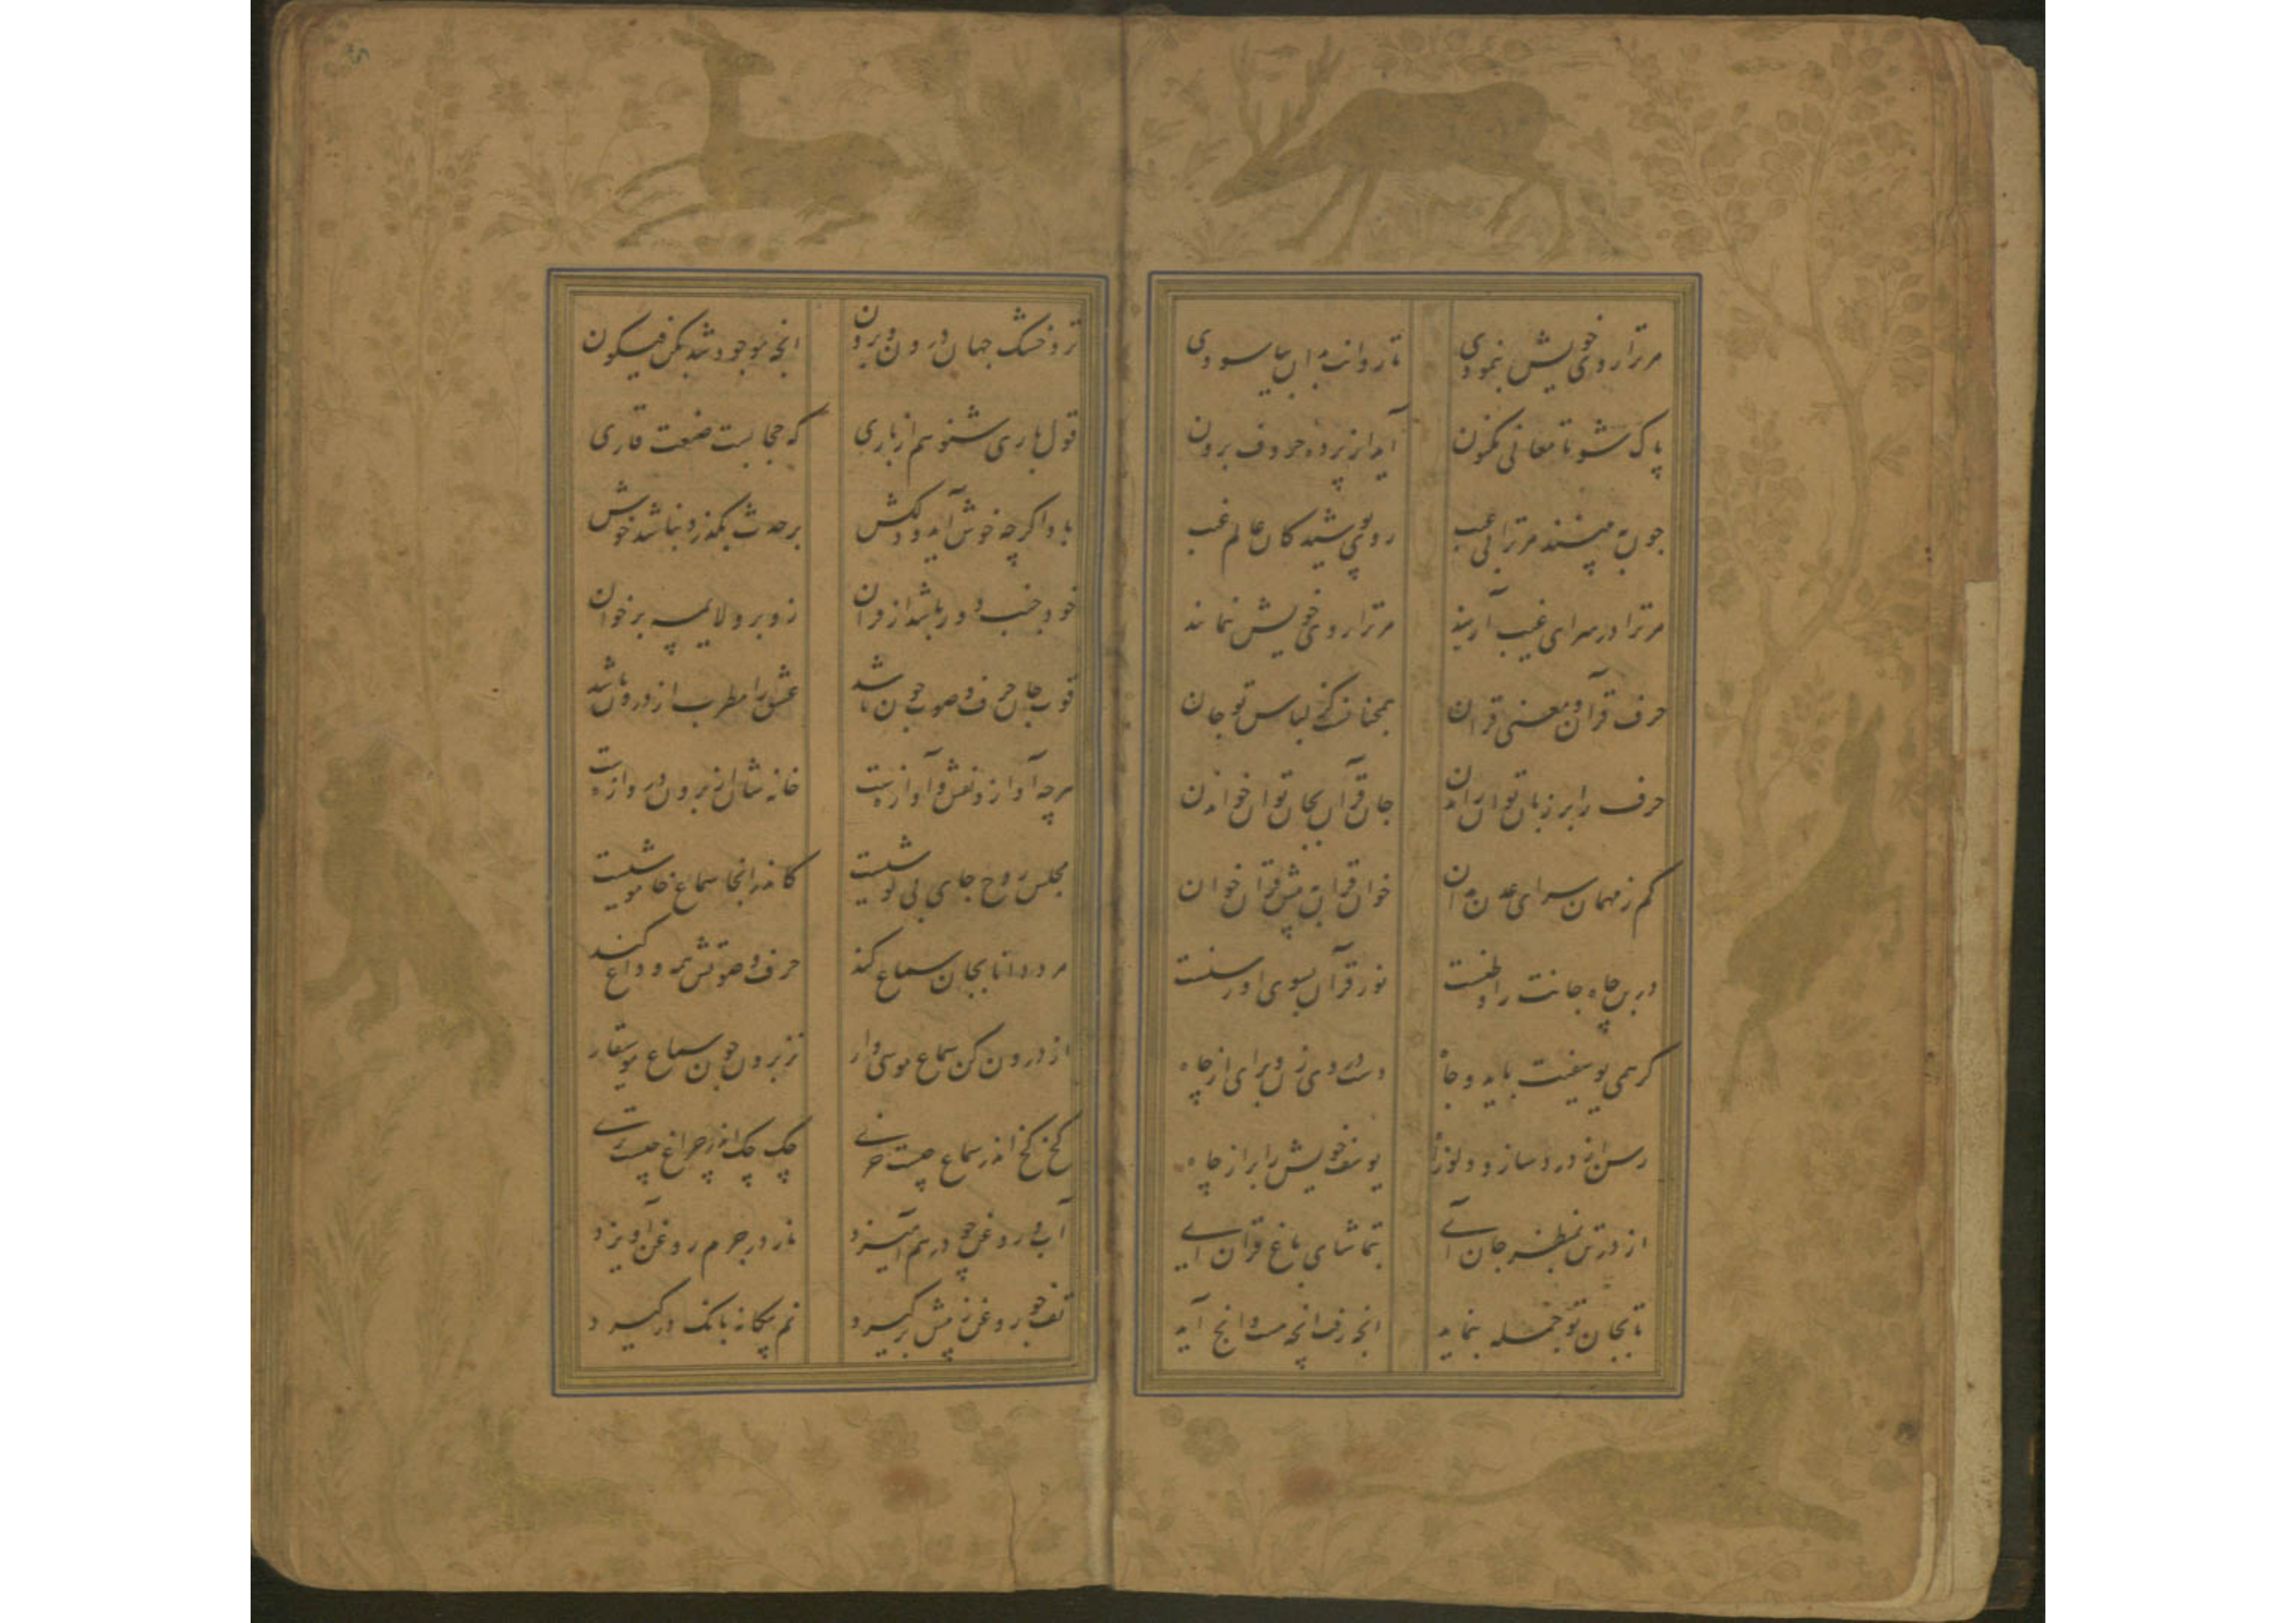 مر ترا روی خویش بنمودی تا روانت بدان بیاسودی
پاک شو تا معانی مکنون آید از پرده حروف برون
چون تو بینند مر ترا بی عیب روی پوشیدکان عالم غیب
مر ترا در سرای غیب آرند مر ترا روی خویش بنمایند
حرف قرآن و معنی قرآن همچنانست کز لباس تو جان
حرف را بر زبان توان راندن جان قرآن بجان توان خواندن
کم ز مهمان سرای عدن مدان خوان قرآن به پیش قرآن خوان
در بن چاه جانت را وطنست نور قرآن بسوی او رسنست
کر همی یوسفیت باید و جاه دست در وی زن و برای از چاه
رسن از درد ساز و دلو از یوسف خویش را برار از چاه
از در تن بمنظر جان آی بتماشای باغ قرآن آی
تا بجان تو جمله بنماید انچه رفت انچه هست وانچ آید
تر و خشک جهان درون و برون انچه موجود شد بکن فیکون
قول باری شنو هم از باری که حجابست صنعت قاری
باد اکرچه خوش آید و دلکش بر حدث بگذرد نباشد خوش
خود جنب دور باشد از قرآن زو برو لایمسه برخوان
قوت جان حرف و صوت چون باشد عشق را مطرب از درون باشد
هرچه آواز و نقش و آوازست خانه شان از برون دروازست
مجلس روح جای بی کوشیست کاندرانجا سماع خاموشیست
مرد دانا بجان سماع کند حرف و صوتش همه وداع کند
از درون کن سماع موسی وار نز برون چون سماع موسیقار
کخ کخ اندر سماع چیست خری چک چک اندر چراغ چیست تری
آب و روغن چو در هم آمیزد نار در جرم روغن آویزد
تف چو روغن ز پیش برکیرد نم بیکانه بانک درکیرد